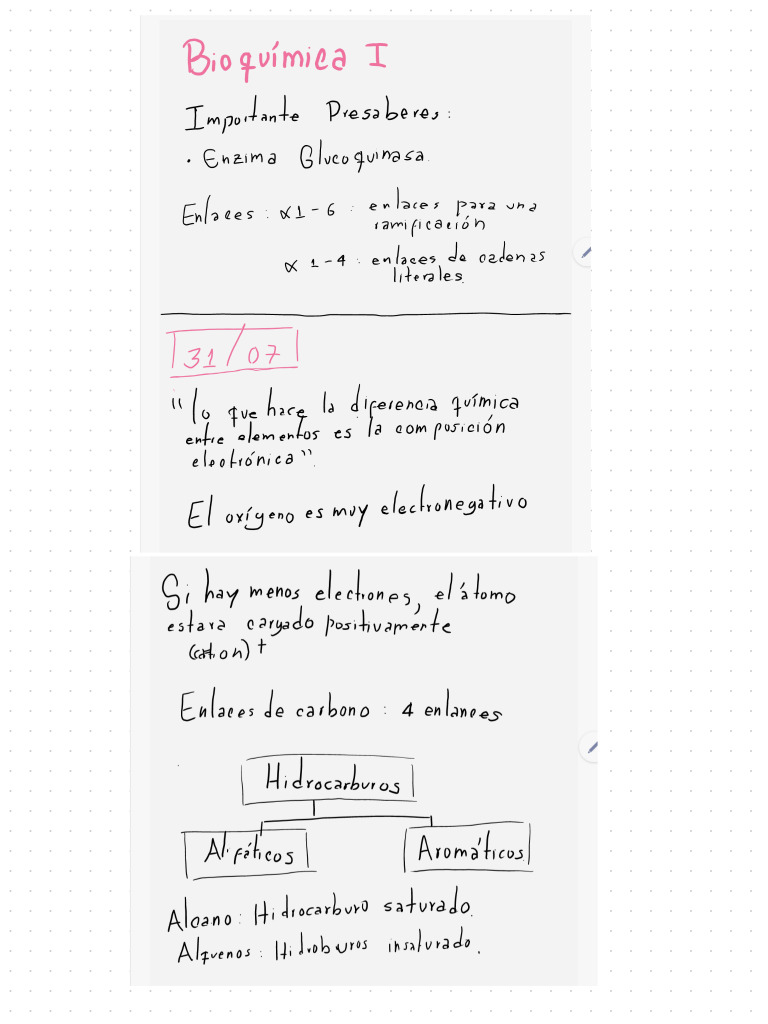 Bioquímica I
Importante Presaberes:
• Enzima Glucoquinasa.
Enlaces: α1-6: enlaces para una
ramificación
α 1-4: enlaces de cadenas
literales.
31/07
"lo que hace la diferencia química
entre elementos es la composición
electrónica".
El oxígeno es muy electronegativo
Si hay menos electrones, el átomo
estara cargado positivamente
(cation)+
Enlaces de carbono: 4 enlances
Hidrocarburos
Alifáticos
Aromáticos
Alcano: Hidrocarburo saturado.
Alquenos: Hidroburos insaturado.